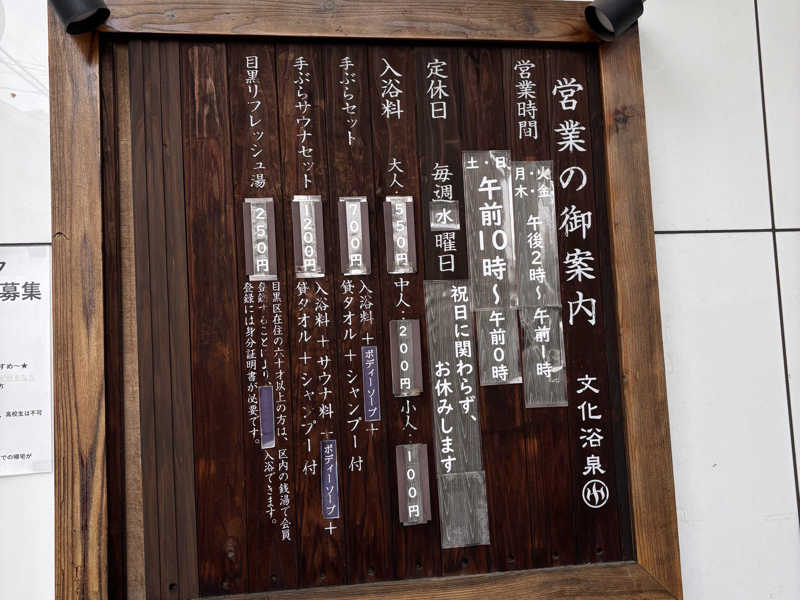 営業の御案内 文化浴泉
営業時間
月・火・木・金 午後2時〜午前1時
土・日 午前10時〜午前0時
定休日 毎週水曜日
祝日に関わらず、
お休みします
入浴料 大人・550円 中人・200円 小人・100円
手ぶらセット 700円 入浴料＋ボディーソープ＋
貸タオル＋シャンプー付
手ぶらサウナセット 1200円 入浴料＋サウナ料＋ボディーソープ＋
貸タオル＋シャンプー付
目黒リフレッシュ湯 250円 目黒区在住の六十才以上の方は、区内の銭湯で会員
登録することにより、入浴できます。
登録には身分証明書が必要です。
募集
高校生は不可